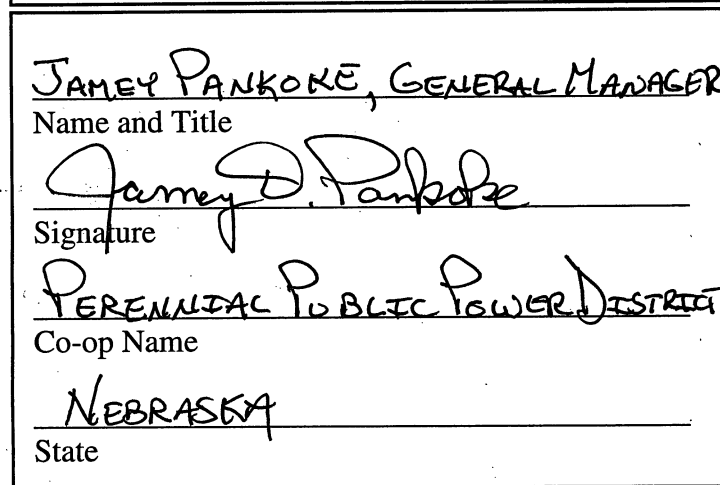 JAMEY PANKOKE, GENERAL MANAGER
Name and Title
Jamey D. Pankoke
Signature
PERENNIAL PUBLIC POWER DISTRICT
Co-op Name
NEBRASKA
State